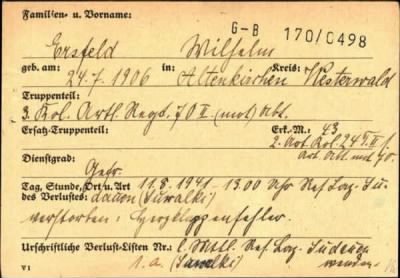 Familien- u. Vorname:
G-B 170/0498
Ersfeld Wilhelm
geb. am: in: Kreis:
24.7.1906 Altenkirchen Westerwald
Truppenteil:
3. Kol. Artl. Regt. 70 II (mot) Abt.
Ersatz-Truppenteil: Erk.-M.: 43
2. Art. Kol.
Art. Abt. mot 70.
Dienstgrad:
Gefr.
Tag, Stunde, Ort u. Art 11.8.1941 - 13.00 Uhr Res. Laz. Su=
des Verlustes: dauen (Suwalki)
verstorben: Herzklappenfehler.
Urschriftliche Verlust-Listen Nr.: Res. Laz. Sudauen
1.a. (Suwalki)
V 1